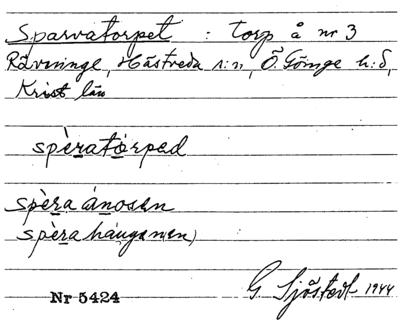 Sparvatorpet : torp å nr 3
Rävninge, Hästveda s:n, Ö. Göinge h:d,
Krist län
spèratórped
spèra ánosen
spèra háugenen)
G. Sjöstedt 1944
Nr 5424